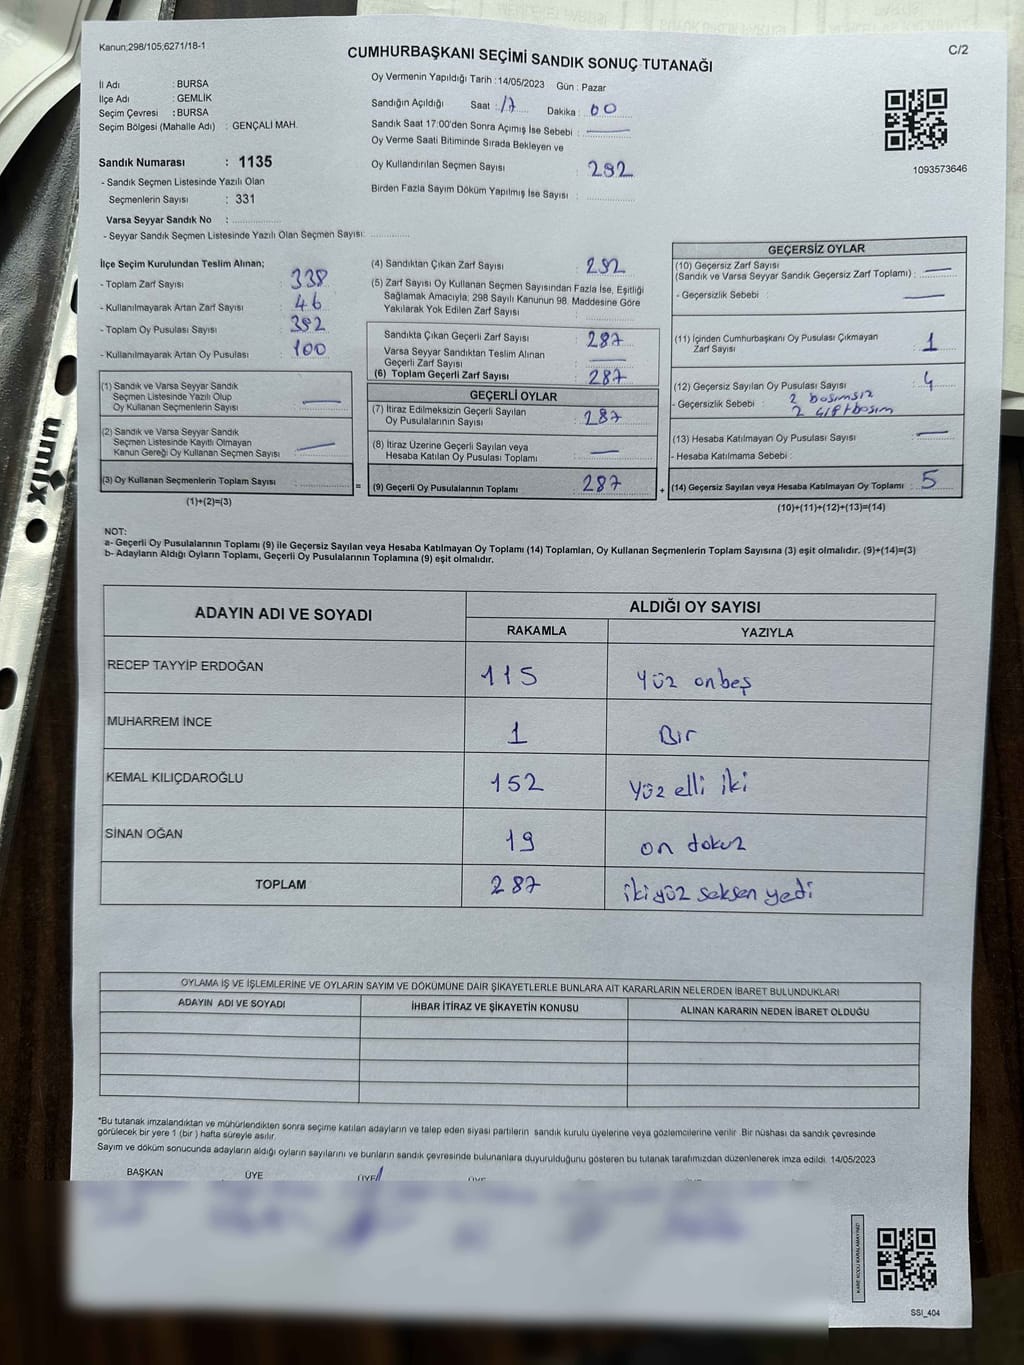 Kanun;298/105,6271/18-1
C/2
CUMHURBAŞKANI SEÇİMİ SANDIK SONUÇ TUTANAĞI
İl Adı : BURSA
İlçe Adı : GEMLİK
Seçim Çevresi : BURSA
Seçim Bölgesi (Mahalle Adı) : GENÇALİ MAH.
Sandık Numarası : 1135
- Sandık Seçmen Listesinde Yazılı Olan
Seçmenlerin Sayısı : 331
Varsa Seyyar Sandık No :
- Seyyar Sandık Seçmen Listesinde Yazılı Olan Seçmen Sayısı:
Oy Vermenin Yapıldığı Tarih : 14/05/2023 Gün : Pazar
Sandığın Açıldığı Saat : 17 Dakika : 00
Sandık Saat 17:00'den Sonra Açımış İse Sebebi :
Oy Verme Saati Bitiminde Sırada Bekleyen ve
Oy Kullandırılan Seçmen Sayısı : 292
Birden Fazla Sayım Döküm Yapılmış İse Sayısı :
1093573646
İlçe Seçim Kurulundan Teslim Alınan;
- Toplam Zarf Sayısı : 338
- Kullanılmayarak Artan Zarf Sayısı : 46
- Toplam Oy Pusulası Sayısı : 392
- Kullanılmayarak Artan Oy Pusulası : 100
(1) Sandık ve Varsa Seyyar Sandık
Seçmen Listesinde Yazılı Olup
Oy Kullanan Seçmenlerin Sayısı :
(2) Sandık ve Varsa Seyyar Sandık
Seçmen Listesinde Kayıtlı Olmayan
Kanun Gereği Oy Kullanan Seçmen Sayısı :
(3) Oy Kullanan Seçmenlerin Toplam Sayısı :
(1)+(2)=(3)
(4) Sandıktan Çıkan Zarf Sayısı : 292
(5) Zarf Sayısı Oy Kullanan Seçmen Sayısından Fazla İse, Eşitliği
Sağlamak Amacıyla; 298 Sayılı Kanunun 98. Maddesine Göre
Yakılarak Yok Edilen Zarf Sayısı :
Sandıkta Çıkan Geçerli Zarf Sayısı : 287
Varsa Seyyar Sandıktan Teslim Alınan
Geçerli Zarf Sayısı :
(6) Toplam Geçerli Zarf Sayısı : 287
GEÇERLİ OYLAR
(7) İtiraz Edilmeksizin Geçerli Sayılan
Oy Pusulalarının Sayısı : 287
(8) İtiraz Üzerine Geçerli Sayılan veya
Hesaba Katılan Oy Pusulası Toplamı :
= (9) Geçerli Oy Pusulalarının Toplamı : 287 +
GEÇERSİZ OYLAR
(10) Geçersiz Zarf Sayısı
(Sandık ve Varsa Seyyar Sandık Geçersiz Zarf Toplamı) :
- Geçersizlik Sebebi :
(11) İçinden Cumhurbaşkanı Oy Pusulası Çıkmayan
Zarf Sayısı : 1
(12) Geçersiz Sayılan Oy Pusulası Sayısı : 4
- Geçersizlik Sebebi : 2 basımsız
2 çift basım
(13) Hesaba Katılmayan Oy Pusulası Sayısı :
- Hesaba Katılmama Sebebi :
(14) Geçersiz Sayılan veya Hesaba Katılmayan Oy Toplamı : 5
(10)+(11)+(12)+(13)=(14)
NOT:
a- Geçerli Oy Pusulalarının Toplamı (9) ile Geçersiz Sayılan veya Hesaba Katılmayan Oy Toplamı (14) Toplamları, Oy Kullanan Seçmenlerin Toplam Sayısına (3) eşit olmalıdır. (9)+(14)=(3)
b- Adayların Aldığı Oyların Toplamı, Geçerli Oy Pusulalarının Toplamına (9) eşit olmalıdır.
ADAYIN ADI VE SOYADI ALDIĞI OY SAYISI
RAKAMLA YAZIYLA
RECEP TAYYİP ERDOĞAN 115 Yüz onbeş
MUHARREM İNCE 1 Bir
KEMAL KILIÇDAROĞLU 152 Yüz elli iki
SİNAN OĞAN 19 on dokuz
TOPLAM 287 iki yüz seksen yedi
OYLAMA İŞ VE İŞLEMLERİNE VE OYLARIN SAYIM VE DÖKÜMÜNE DAİR ŞİKAYETLERLE BUNLARA AİT KARARLARIN NELERDEN İBARET BULUNDUKLARI
ADAYIN ADI VE SOYADI İHBAR İTİRAZ VE ŞİKAYETİN KONUSU ALINAN KARARIN NEDEN İBARET OLDUĞU
*Bu tutanak imzalandıktan ve mühürlendikten sonra seçime katılan adayların ve talep eden siyasi partilerin sandık kurulu üyelerine veya gözlemcilerine verilir. Bir nüshası da sandık çevresinde
görülecek bir yere 1 (bir ) hafta süreyle asılır.
Sayım ve döküm sonucunda adayların aldığı oyların sayılarını ve bunların sandık çevresinde bulunanlara duyurulduğunu gösteren bu tutanak tarafımızdan düzenlenerek imza edildi. 14/05/2023
BAŞKAN ÜYE ÜYE ÜYE
KARE KODU KARALAMAYINIZ!
SSI_404
umix